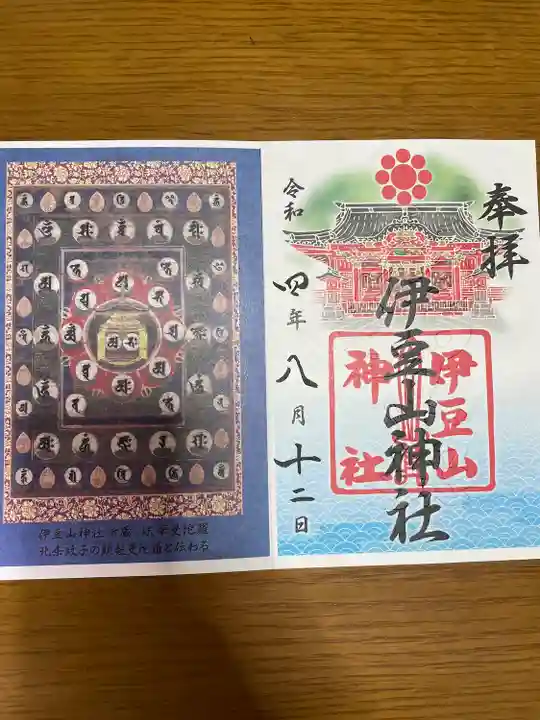 奉拝
伊豆山神社
伊豆山
神社
令和四年八月十二日
伊豆山神社所蔵 法華曼陀羅
北条政子の頭髪曼陀羅と伝わる